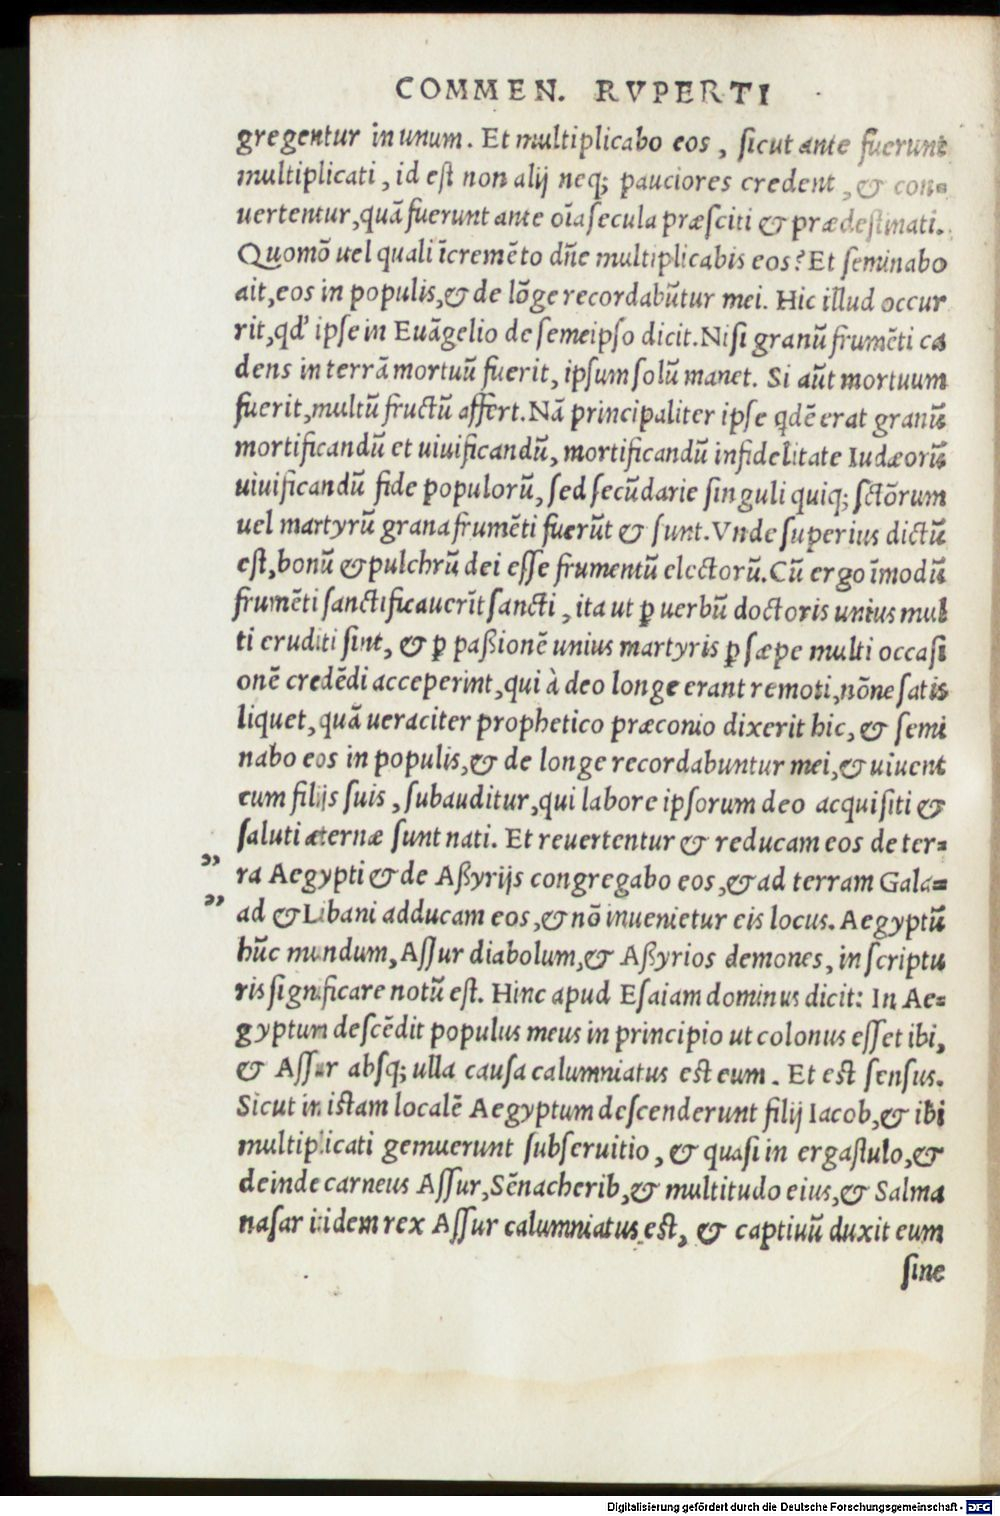 COMMEN. RVPERTI
gregentur in unum. Et multiplicabo eos, sicut ante fuerunt
multiplicati, id est non alij neq; pauciores credent, & con=
uertentur, quā fuerunt ante oīa secula præsciti & prædestinati.
Quomō uel quali īcremēto dñe multiplicabis eos? Et seminabo
ait, eos in populis, & de lōge recordabūtur mei. Hic illud occur
rit, qđ ipse in Euāgelio de semeipso dicit. Nisi granū frumēti ca
dens in terrā mortuū fuerit, ipsum solū manet. Si aūt mortuum
fuerit, multū fructū affert. Nā principaliter ipse qdē erat granū
mortificandū et uiuificandū, mortificandū infidelitate Iudæorū
uiuificandū fide populorū, sed secūdarie singuli quiq; sctōrum
uel martyrū grana frumēti fuerūt & sunt. Vnde superius dictū
est, bonū & pulchrū dei esse frumentū electorū. Cū ergo īmodū
frumēti sanctificauerīt sancti, ita ut ꝑ uerbū doctoris unius mul
ti eruditi sint, & ꝑ paßionē unius martyris ꝑ sæpe multi occasi
onē credēdi acceperint, qui à deo longe erant remoti, nōne satis
liquet, quā ueraciter prophetico præconio dixerit hic, & semi
nabo eos in populis, & de longe recordabuntur mei, & uiuent
cum filijs suis, subauditur, qui labore ipsorum deo acquisiti &
saluti æternæ sunt nati. Et reuertentur & reducam eos de ter=
„ ra Aegypti & de Aßyrijs congregabo eos, & ad terram Gala=
„ ad & Libani adducam eos, & nō inuenietur eis locus. Aegyptū
hūc mundum, Assur diabolum, & Aßyrios demones, in scriptu
ris significare notū est. Hinc apud Esaiam dominus dicit: In Ae=
gyptum descēdit populus meus in principio ut colonus esset ibi,
& Assur absq; ulla causa calumniatus est eum. Et est sensus.
Sicut in istam localē Aegyptum descenderunt filij Iacob, & ibi
multiplicati gemuerunt sub seruitio, & quasi in ergastulo, &
deinde carneus Assur, Sēnacherib, & multitudo eius, & Salma
nasar itidem rex Assur calumniatus est, & captiuū duxit eum
sine
Digitalisierung gefördert durch die Deutsche Forschungsgemeinschaft - DFG